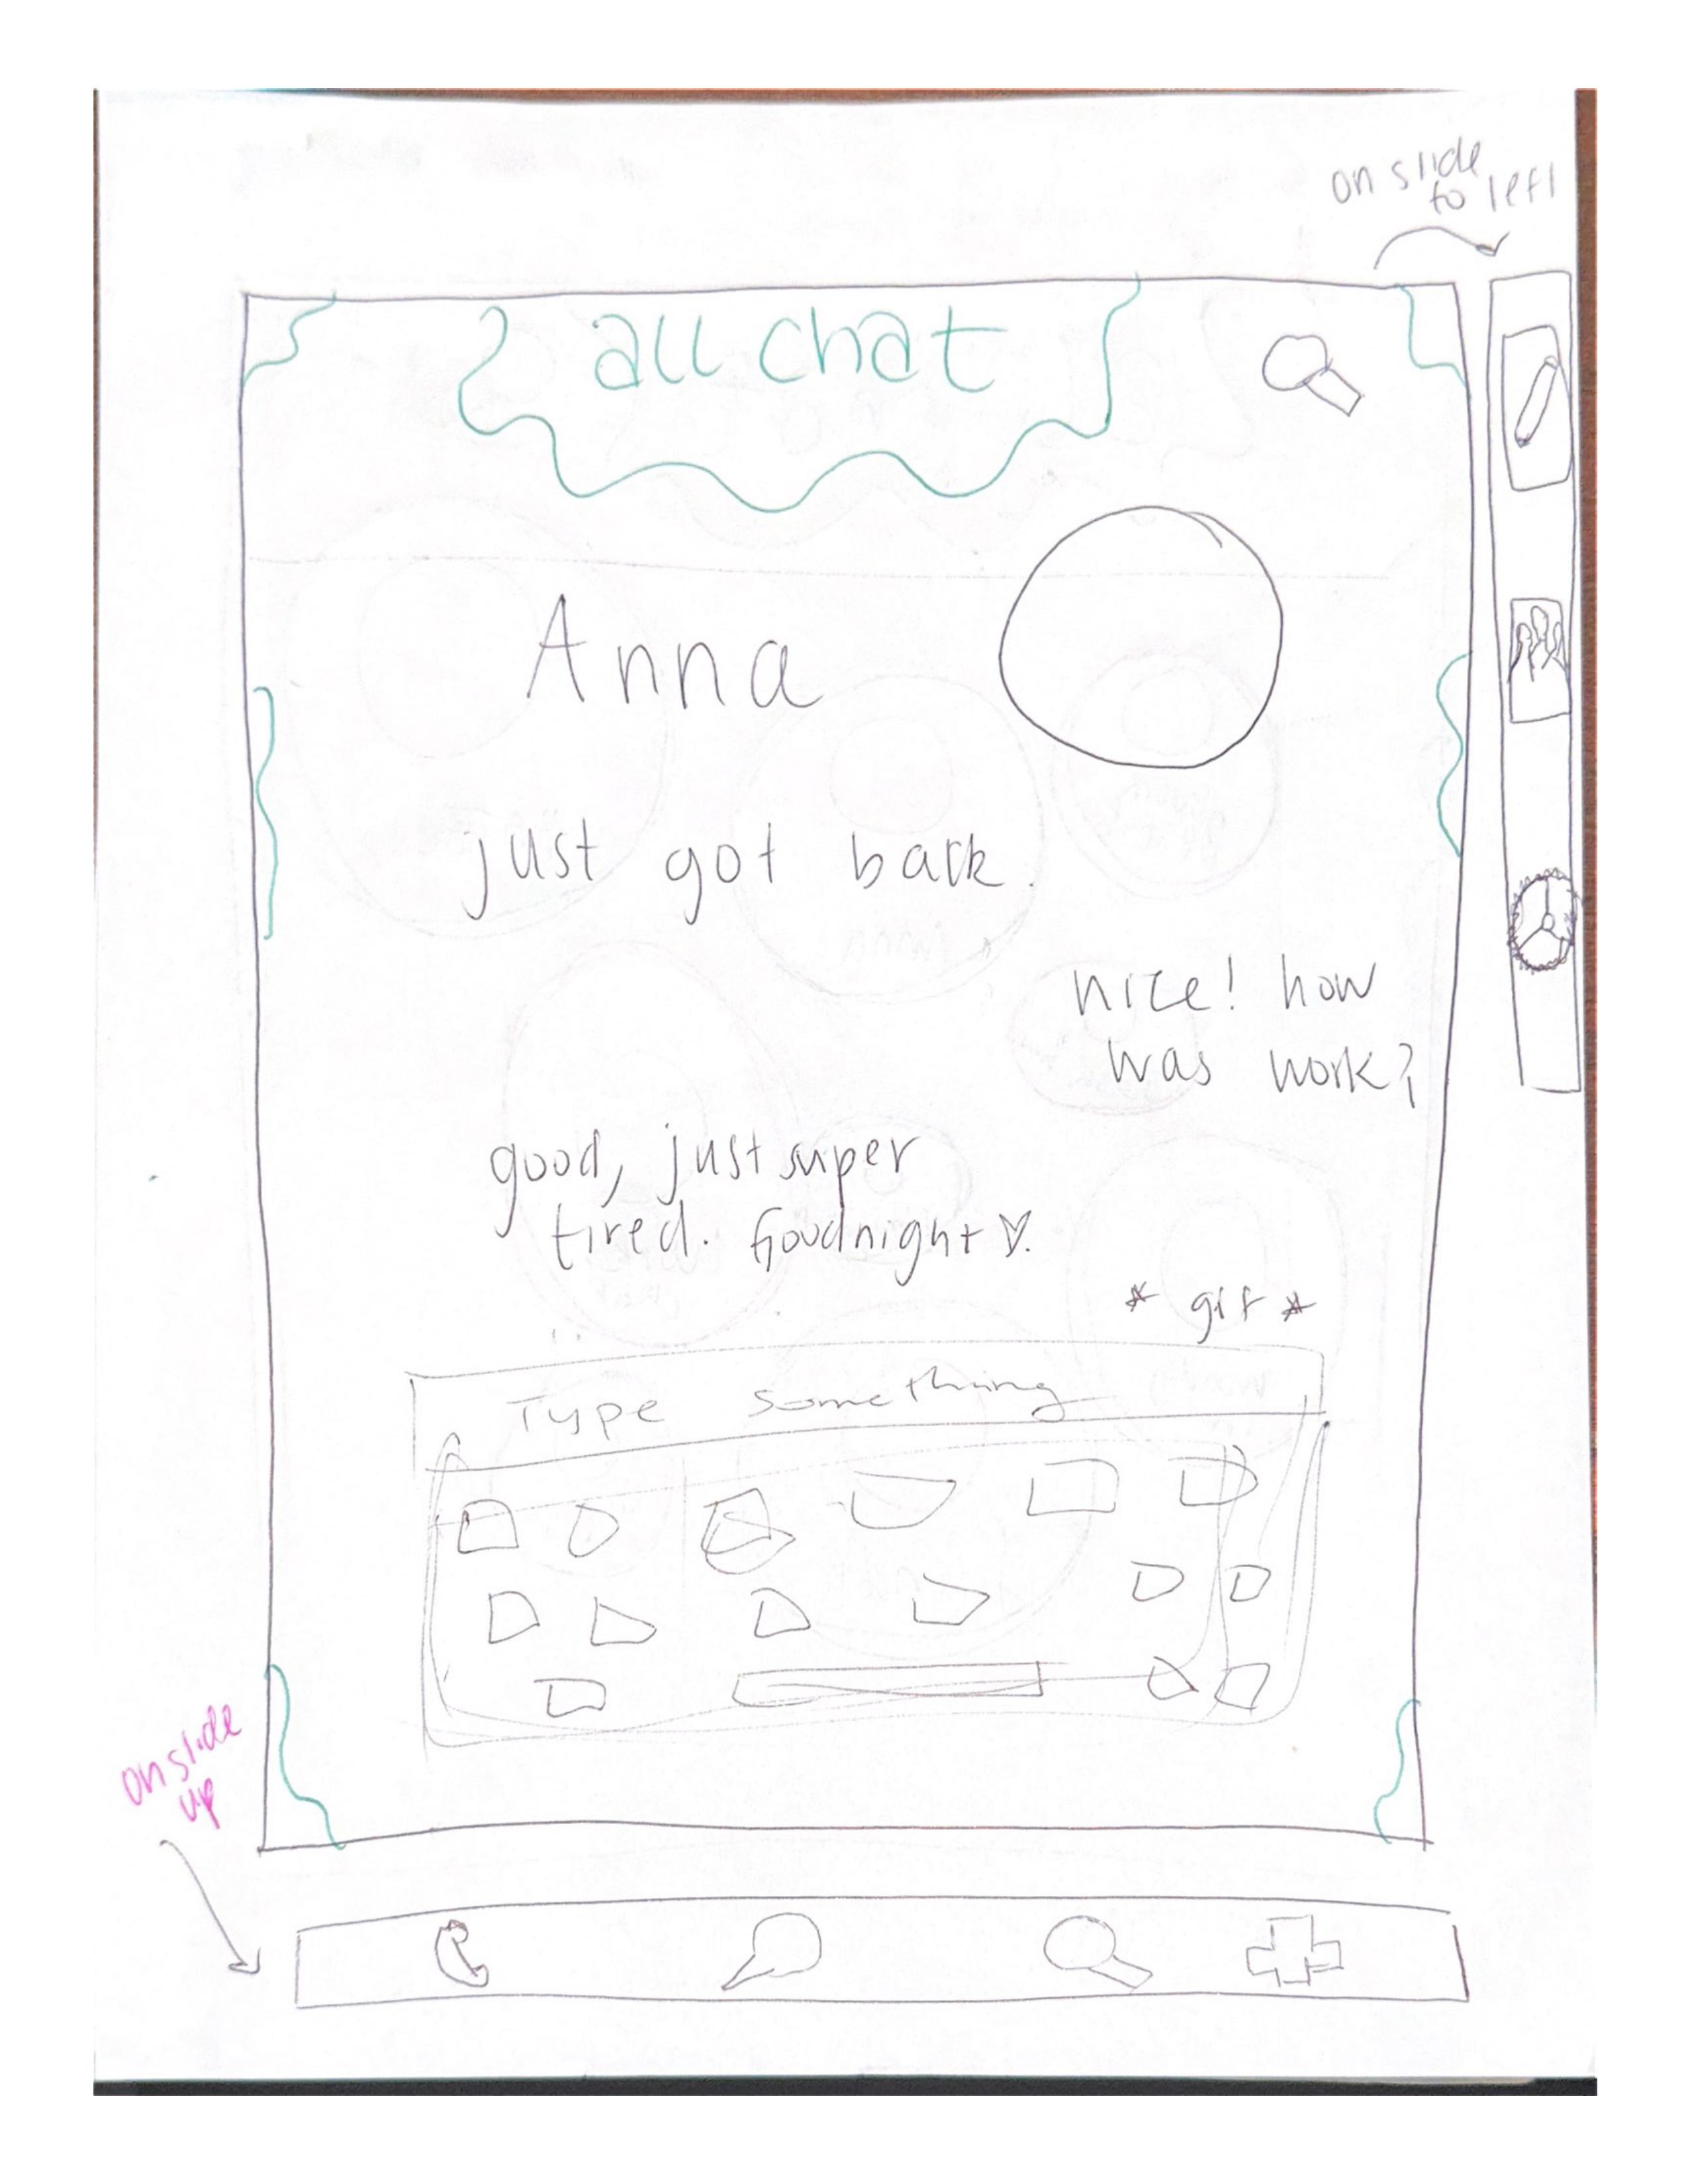 on slide
to left
all chat
Anna
just got back.
nice! how
was work?
good, just super
tired. Goodnight ♡.
* gif *
Type something
on slide
up